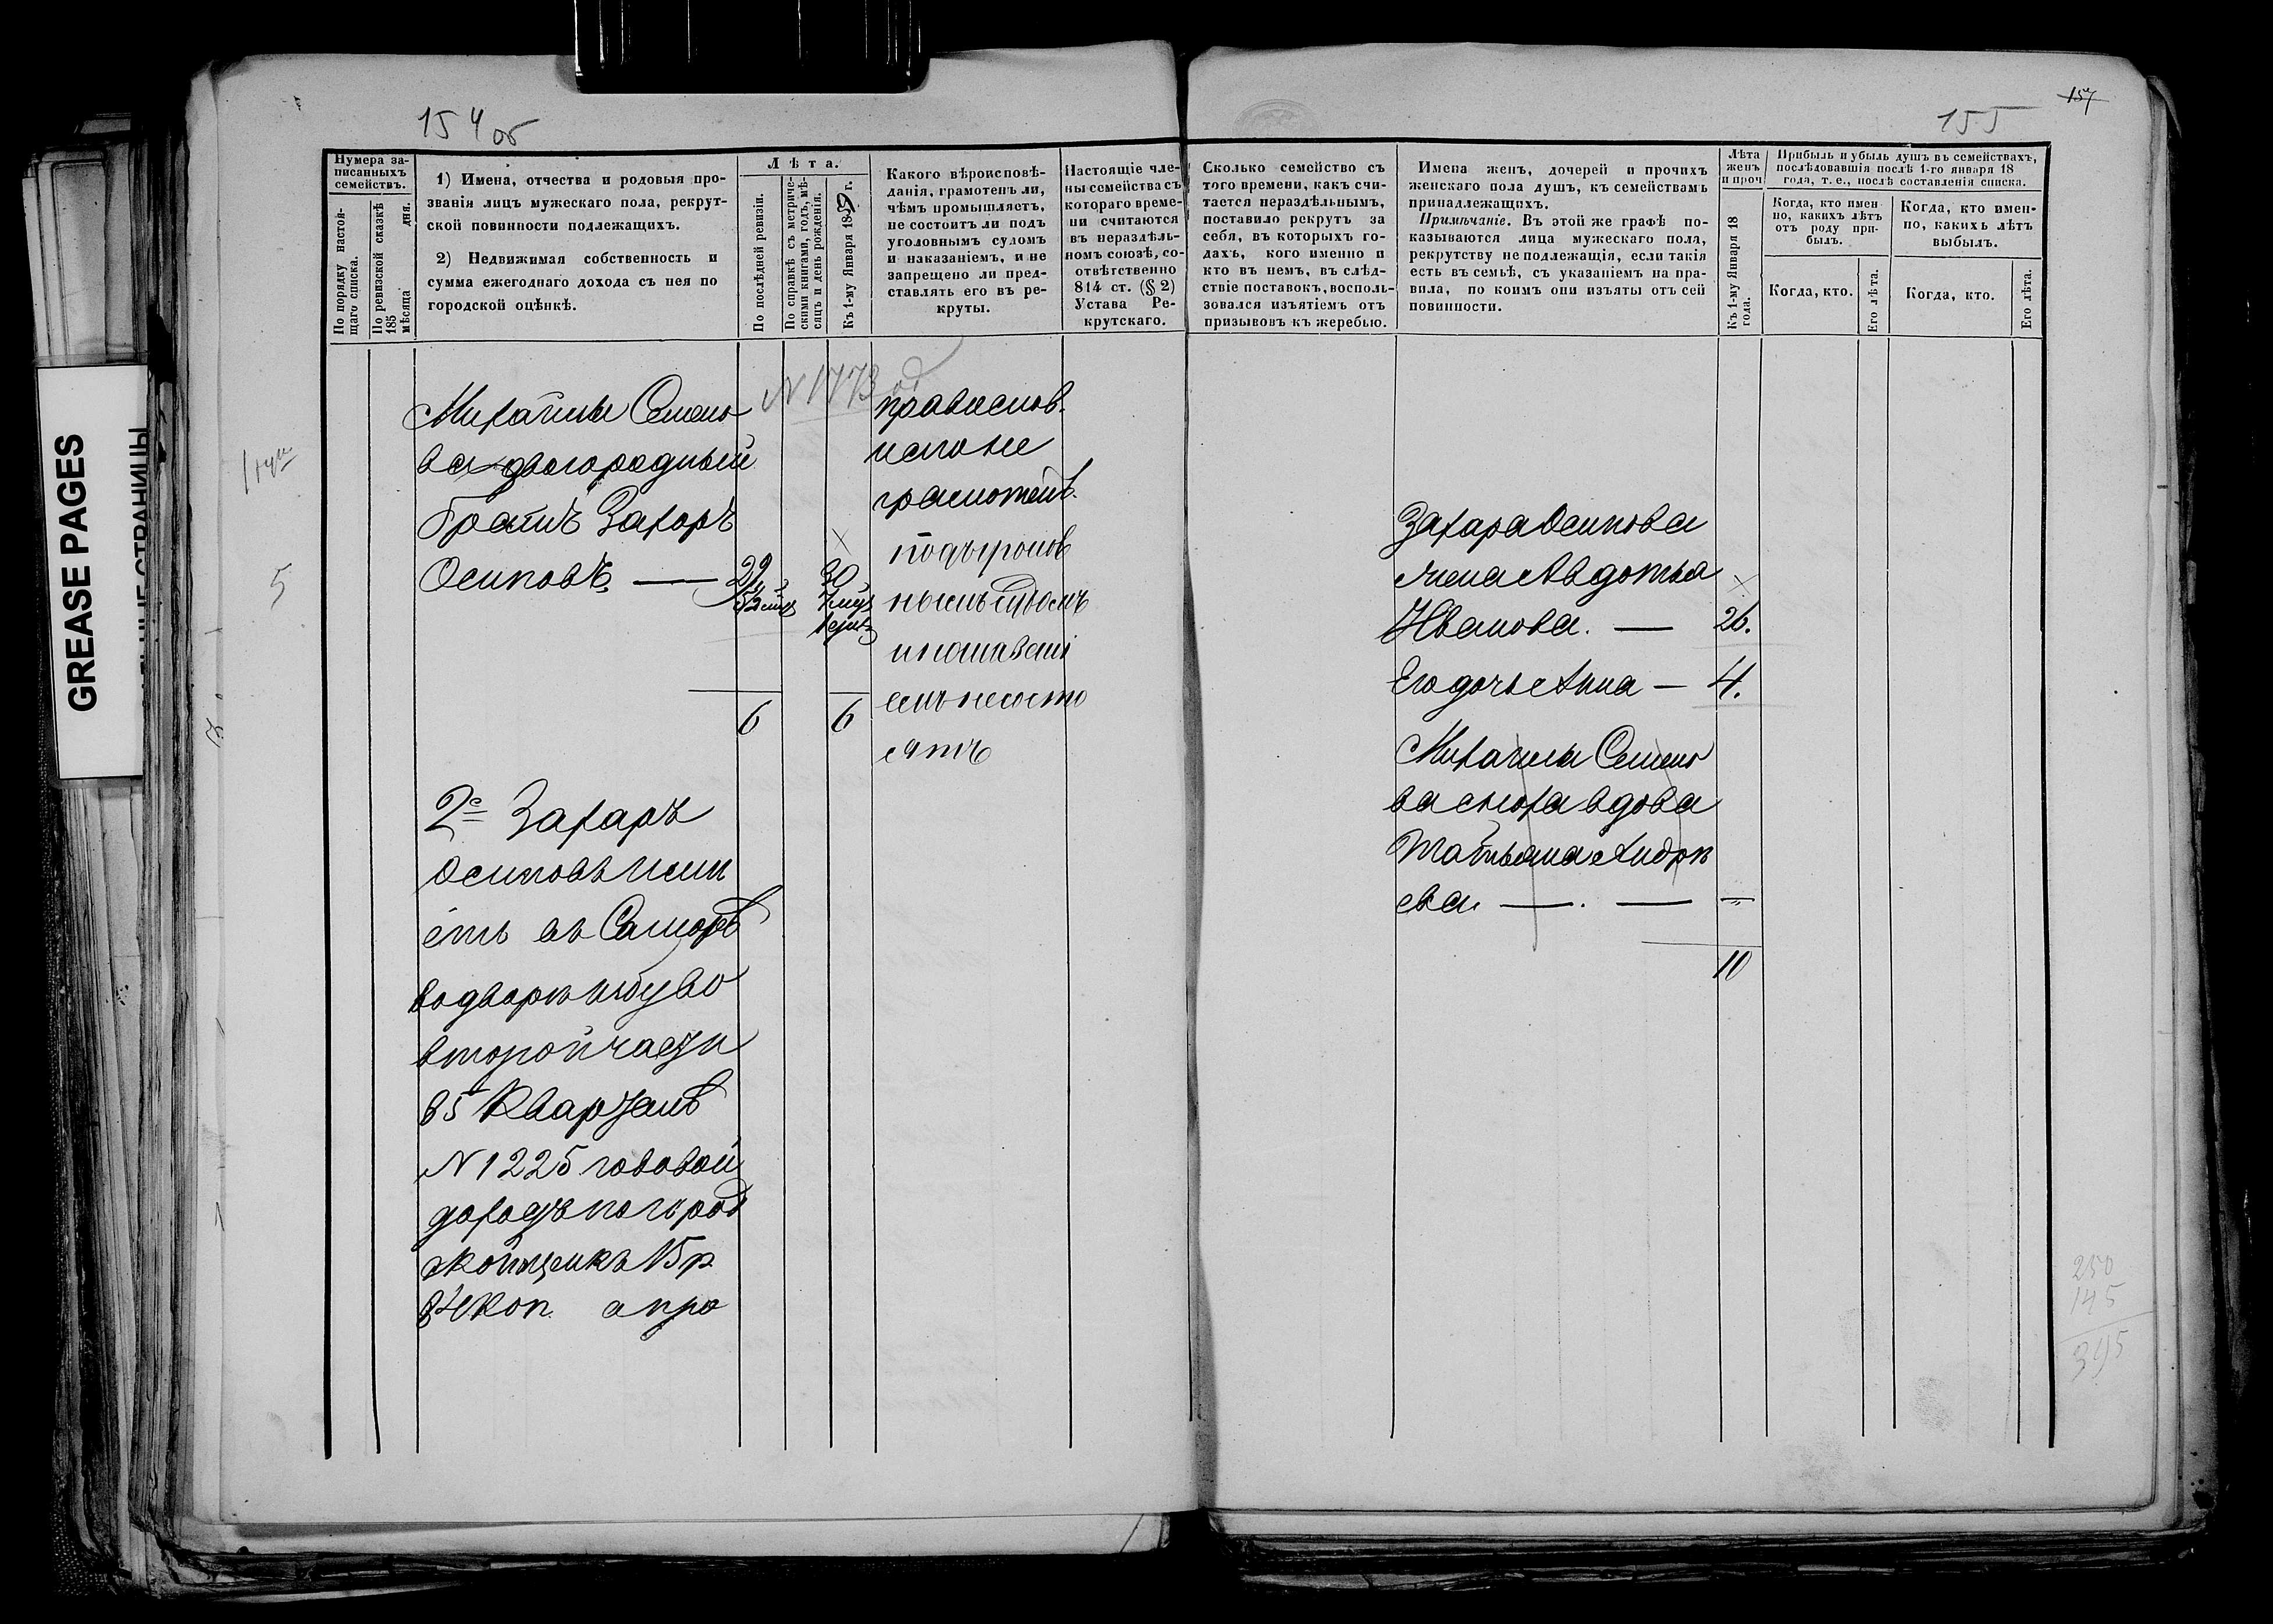 GREASE PAGES
154 об
155
157
Нумера записанныхъ семействъ.
По порядку настоящаго списка.
По ревизской сказкѣ 185 мѣсяца дня.
1) Имена, отчества и родовыя прозванія лицъ мужескаго пола, рекрутской повинности подлежащихъ.
2) Недвижимая собственность и сумма ежегоднаго дохода съ нея по городской оцѣнкѣ.
Лѣта.
По послѣдней ревизіи.
По справкѣ съ метрическими книгами, годъ, мѣсяцъ и день рожденія.
Къ 1-му Января 1859 г.
Какого вѣроисповѣданія, грамотенъ ли, чѣмъ промышляетъ, не состоитъ ли подъ уголовнымъ судомъ и наказаніемъ, и не запрещено ли представлять его въ рекруты.
Настоящіе члены семейства съ котораго времени считаются въ нераздѣльномъ союзѣ, соотвѣтственно 814 ст. (§ 2) Устава Рекрутскаго.
Сколько семейство съ того времени, какъ считается нераздѣльнымъ, поставило рекрутъ за себя, въ которыхъ годахъ, кого именно и кто въ немъ, въ слѣдствіе поставокъ, воспользовался изъятіемъ отъ призывовъ къ жеребью.
Имена женъ, дочерей и прочихъ женскаго пола душъ, къ семействамъ принадлежащихъ.
Примѣчаніе. Въ этой же графѣ показываются лица мужескаго пола, рекрутству не подлежащія, если такія есть въ семьѣ, съ указаніемъ на правила, по коимъ они изъяты отъ сей повинности.
Лѣта женъ и проч
Къ 1-му Января 18 года.
Прибыль и убыль душъ въ семействахъ, послѣдовавшія послѣ 1-го января 18 года, т. е., послѣ составленія списка.
Когда, кто именно, какихъ лѣтъ отъ роду прибылъ.
Когда, кто именно, какихъ лѣтъ выбылъ.
Когда, кто.
Его лѣта.
Когда, кто.
Его лѣта.
N 1773
Михайлы Семено
ва двоюродный
братъ Захаръ
Осиповъ — 29 30
5
6 6
православ.
грамотенъ.
подъ уголов
нымъ судомъ
и наказані
емъ несосто
ятъ
2е Захаръ
Осиповъ имѣ
етъ въ Самарѣ
во дворѣ избу во
второй части
в 5 Кварталѣ
N 1225 годовой
доходъ по город
ской оценкѣ 15 р
коп. а про
Захара Осипова
жена Авдотья
Иванова. — 26.
Его дочь Анна — 4.
Михаилы Семено
ва сноха вдова
Татьяна Андрѣ
ева. — . — "
10
250
145
395